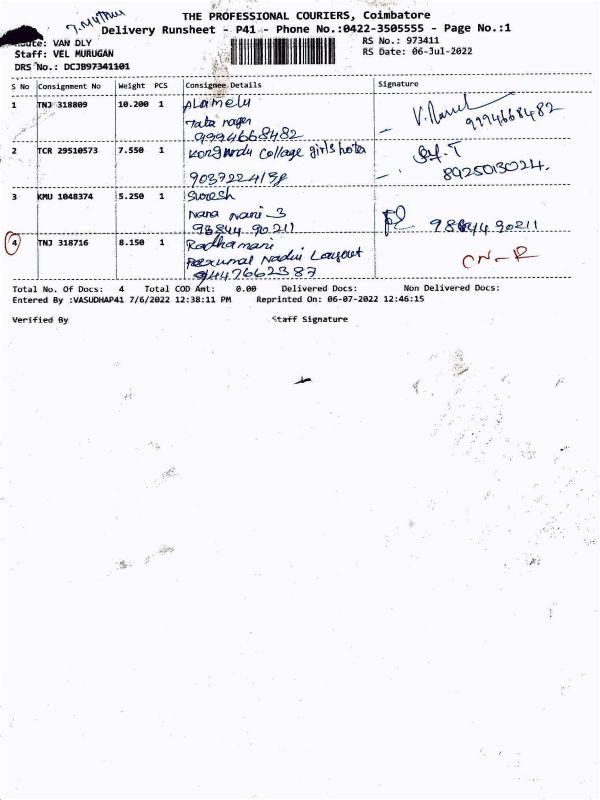 T. Muthu
THE PROFESSIONAL COURIERS, Coimbatore
Delivery Runsheet - P41 - Phone No.:0422-3505555 - Page No.:1
Route: VAN DLY
RS No.: 973411
Staff: VEL MURUGAN
RS Date: 06-Jul-2022
DRS No.: DCJB97341101
S No Consignment No Weight PCS Consignee Details Signature
1 TNJ 318809 10.200 1
Tata nagar
9994668482
9994668482
2 TCR 29510573 7.550 1 Kongundu Collage girls hota
8925013024.
3 KMU 1048374 5.250 1 Suresh
Nana Nani-3
98844 90211
98844 90211
4 TNJ 318716 8.150 1 Radhamani
Perumal Nadui Layout
9447662387
CN-R
Total No. Of Docs: 4 Total COD Amt: 0.00 Delivered Docs: Non Delivered Docs:
Entered By :VASUDHAP41 7/6/2022 12:38:11 PM Reprinted On: 06-07-2022 12:46:15
Verified By Staff Signature